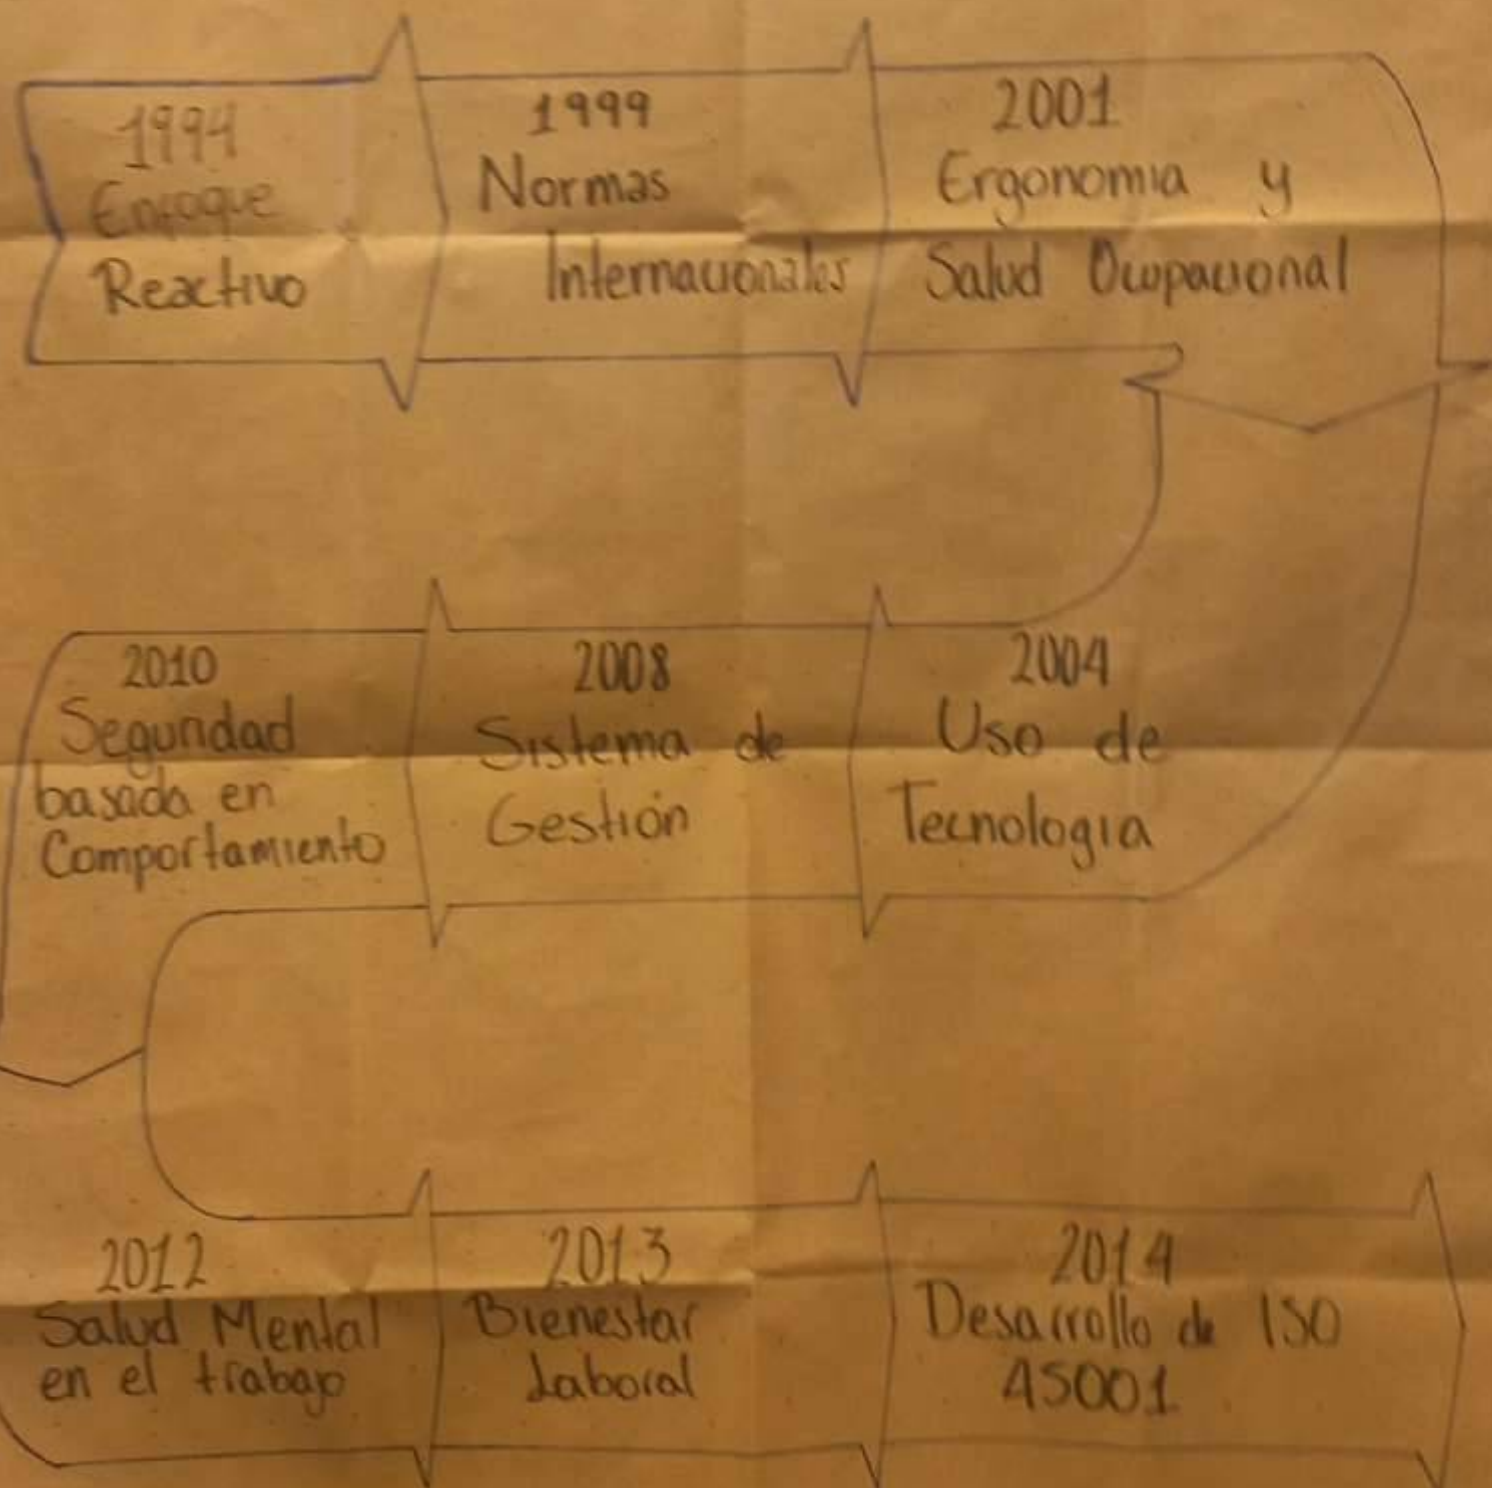 1994
Enfoque
Reactivo
1999
Normas
Internacionales
2001
Ergonomia y
Salud Ocupacional
2010
Seguridad
basada en
Comportamiento
2008
Sistema de
Gestión
2004
Uso de
Tecnologia
2012
Salud Mental
en el trabajo
2013
Bienestar
Laboral
2014
Desarrollo de ISO
45001